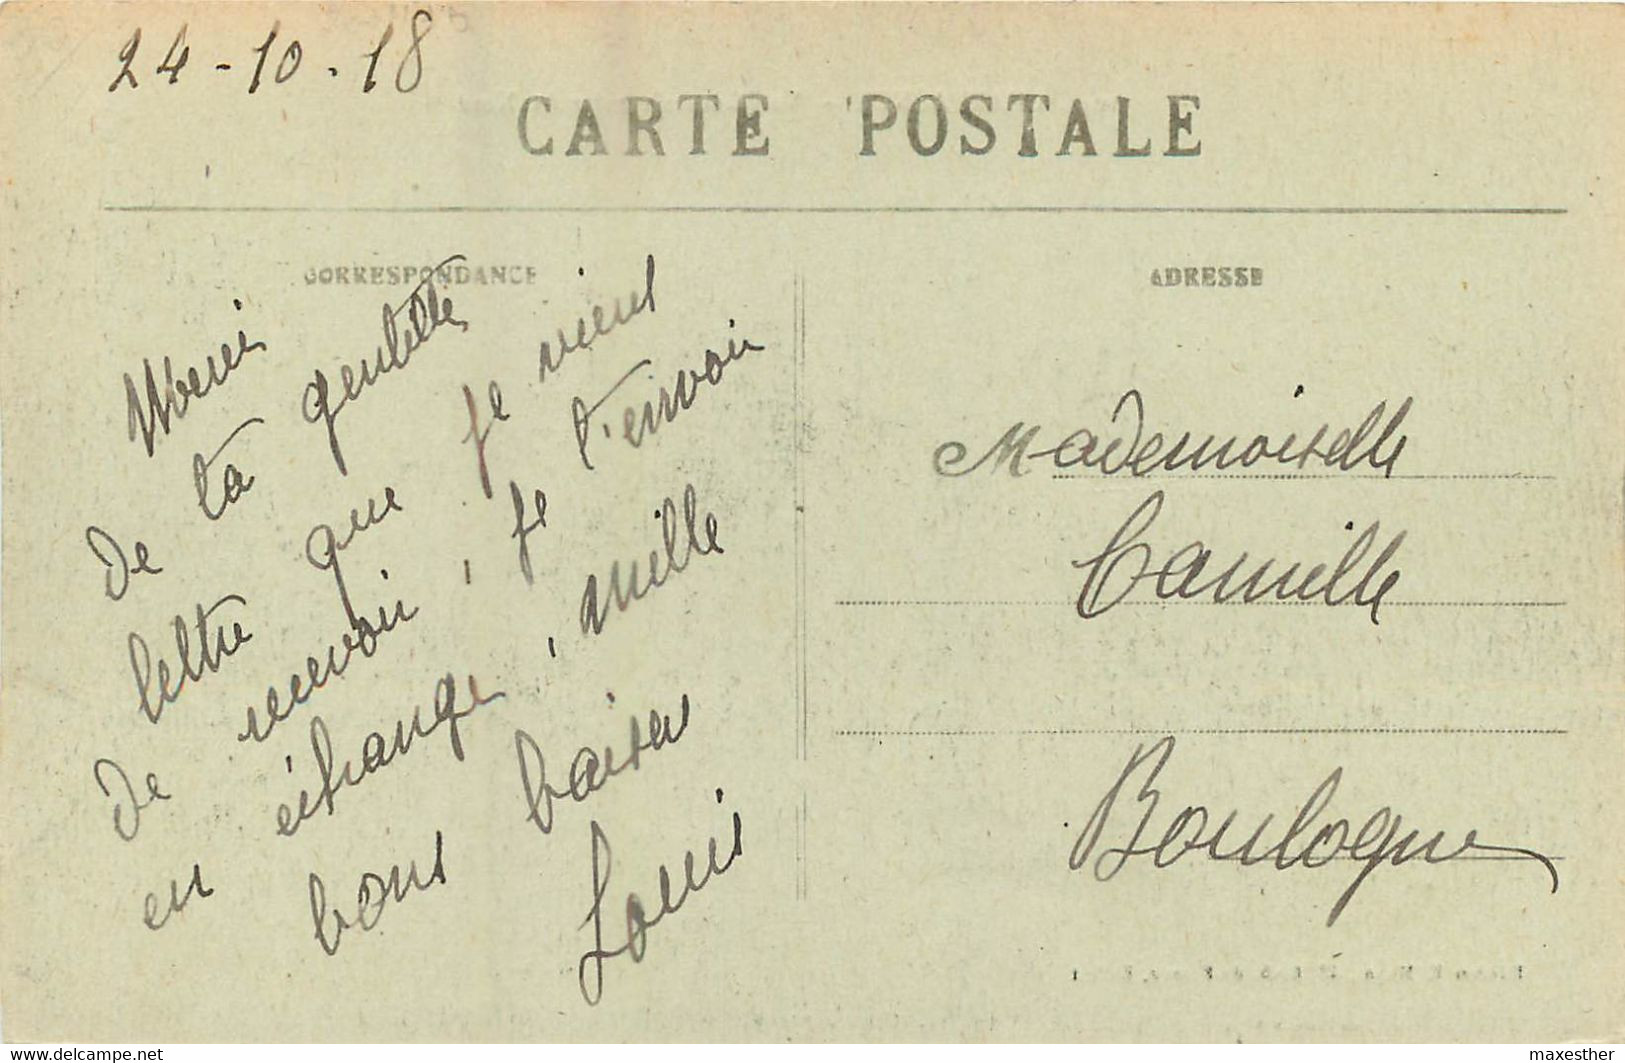 24-10.18
CARTE POSTALE
CORRESPONDANCE
ADRESSE
Merci
de ta gentille
lettre que je viens
de recevoir, je t'envoie
en échange, mille
bons baisers
Louis
Mademoiselle
Camille
Boulogne
www.delcampe.net
maxesther